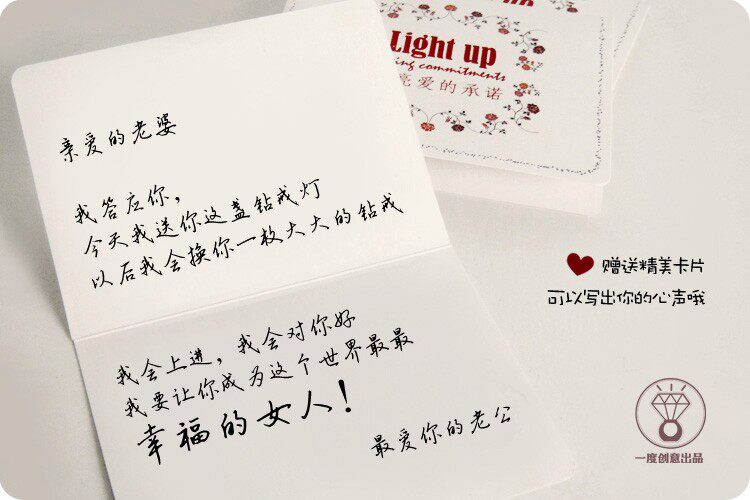 Light up
ing commitments
亮爱的承诺
亲爱的老婆
我答应你，
今天我送你这盏钻戒灯
以后我会换你一枚大大的钻戒
我会上进，我会对你好
我要让你成为这个世界最最
幸福的女人！
最爱你的老公
赠送精美卡片
可以写出你的心声哦
一度创意出品